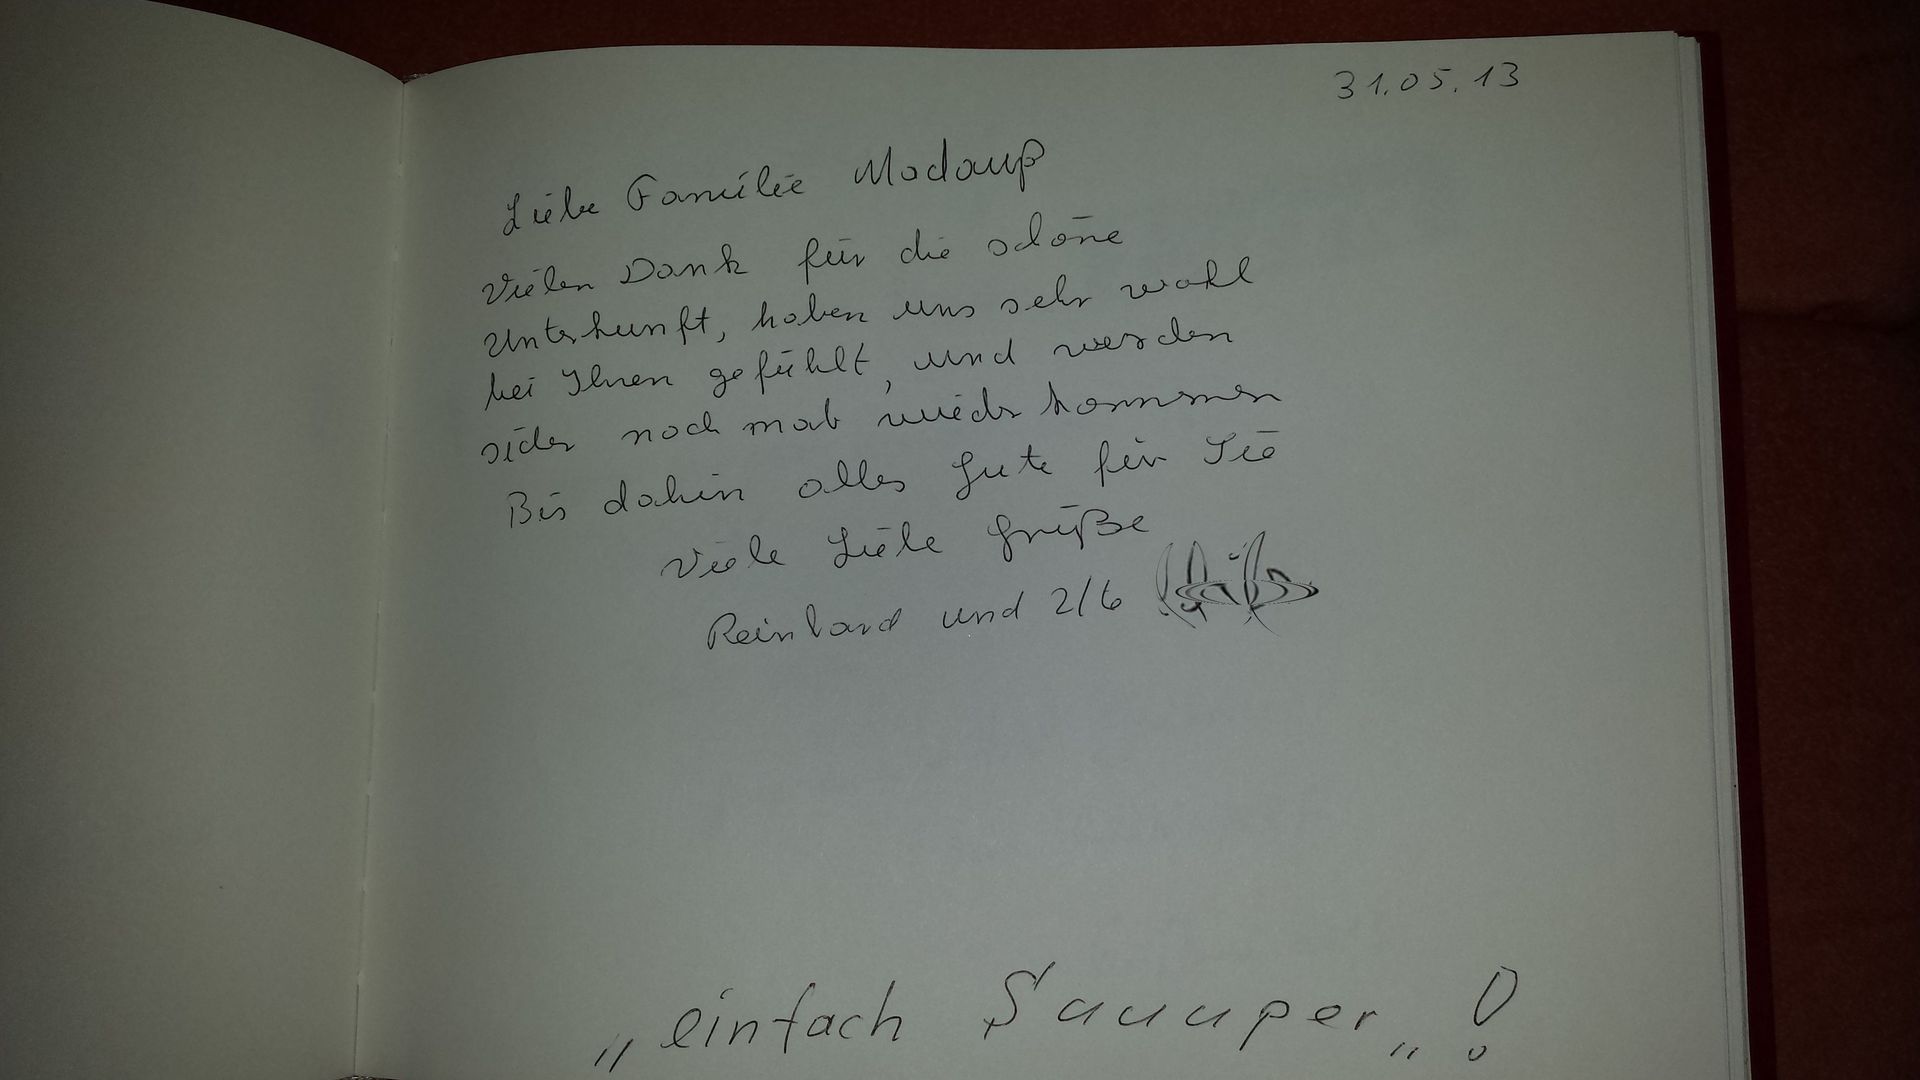 31.05.13
Liebe Familie Madauß
Vielen Dank für die schöne
Unterkunft, haben uns sehr wohl
bei Ihnen gefühlt, und werden
sicher noch mal wieder kommen
Bis dahin alles Gute für Sie
Viele Liebe Grüße
Reinhard und
„einfach Suuuper„!